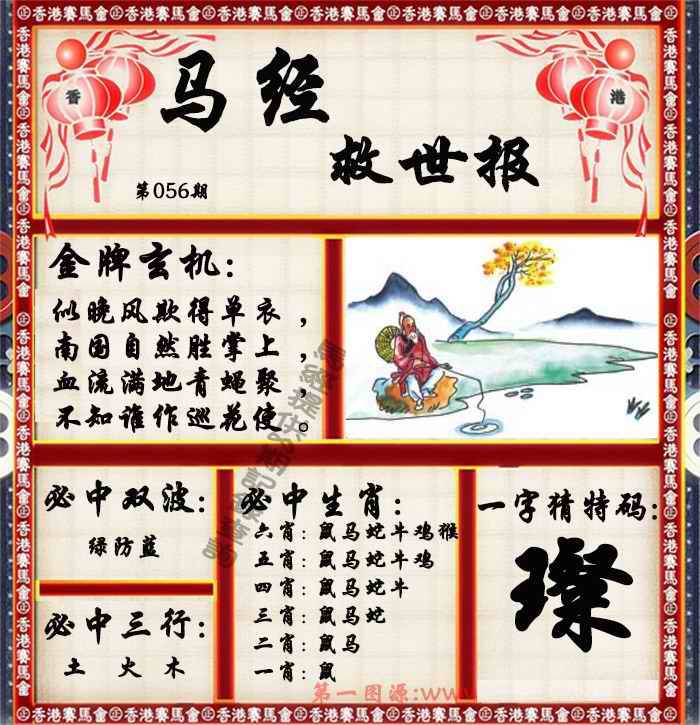 香港賽馬會
香
港
马经
救世报
第056期
金牌玄机:
似晚风欺得单衣，
南国自然胜掌上，
血流满地青蝇聚，
不知谁作巡花使。
必中双波:
绿防蓝
必中三行:
土 火 木
必中生肖:
六肖: 鼠马蛇牛鸡猴
五肖: 鼠马蛇牛鸡
四肖: 鼠马蛇牛
三肖: 鼠马蛇
二肖: 鼠马
一肖: 鼠
一字猜特码:
璨
第一图源:www